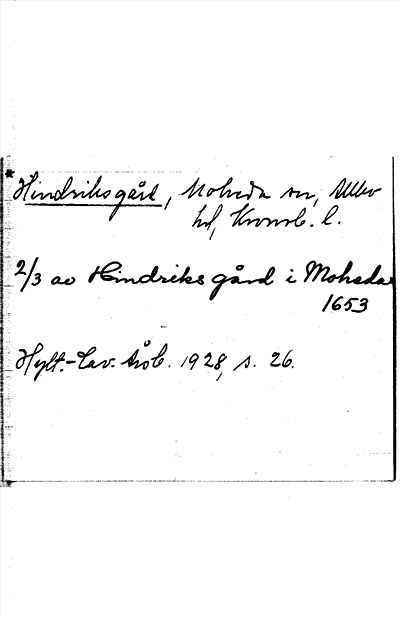 * Hindriksgård, Moheda sn, Allbo
hd, Kronob. l.
2/3 av Hindriks gård i Moheda
1653
Hylt.-Cav. Årsb. 1928, s. 26.